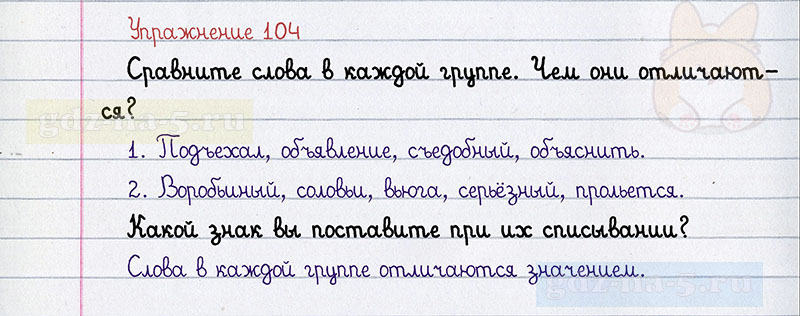 Упражнение 104
Сравните слова в каждой группе. Чем они отличают-
ся?
gdz-na-5.ru
1. Подъехал, объявление, съедобный, объяснить.
2. Воробьиный, соловьи, вьюга, серьёзный, прольется.
Какой знак вы поставите при их списывании?
Слова в каждой группе отличаются значением.
gdz-na-5.ru